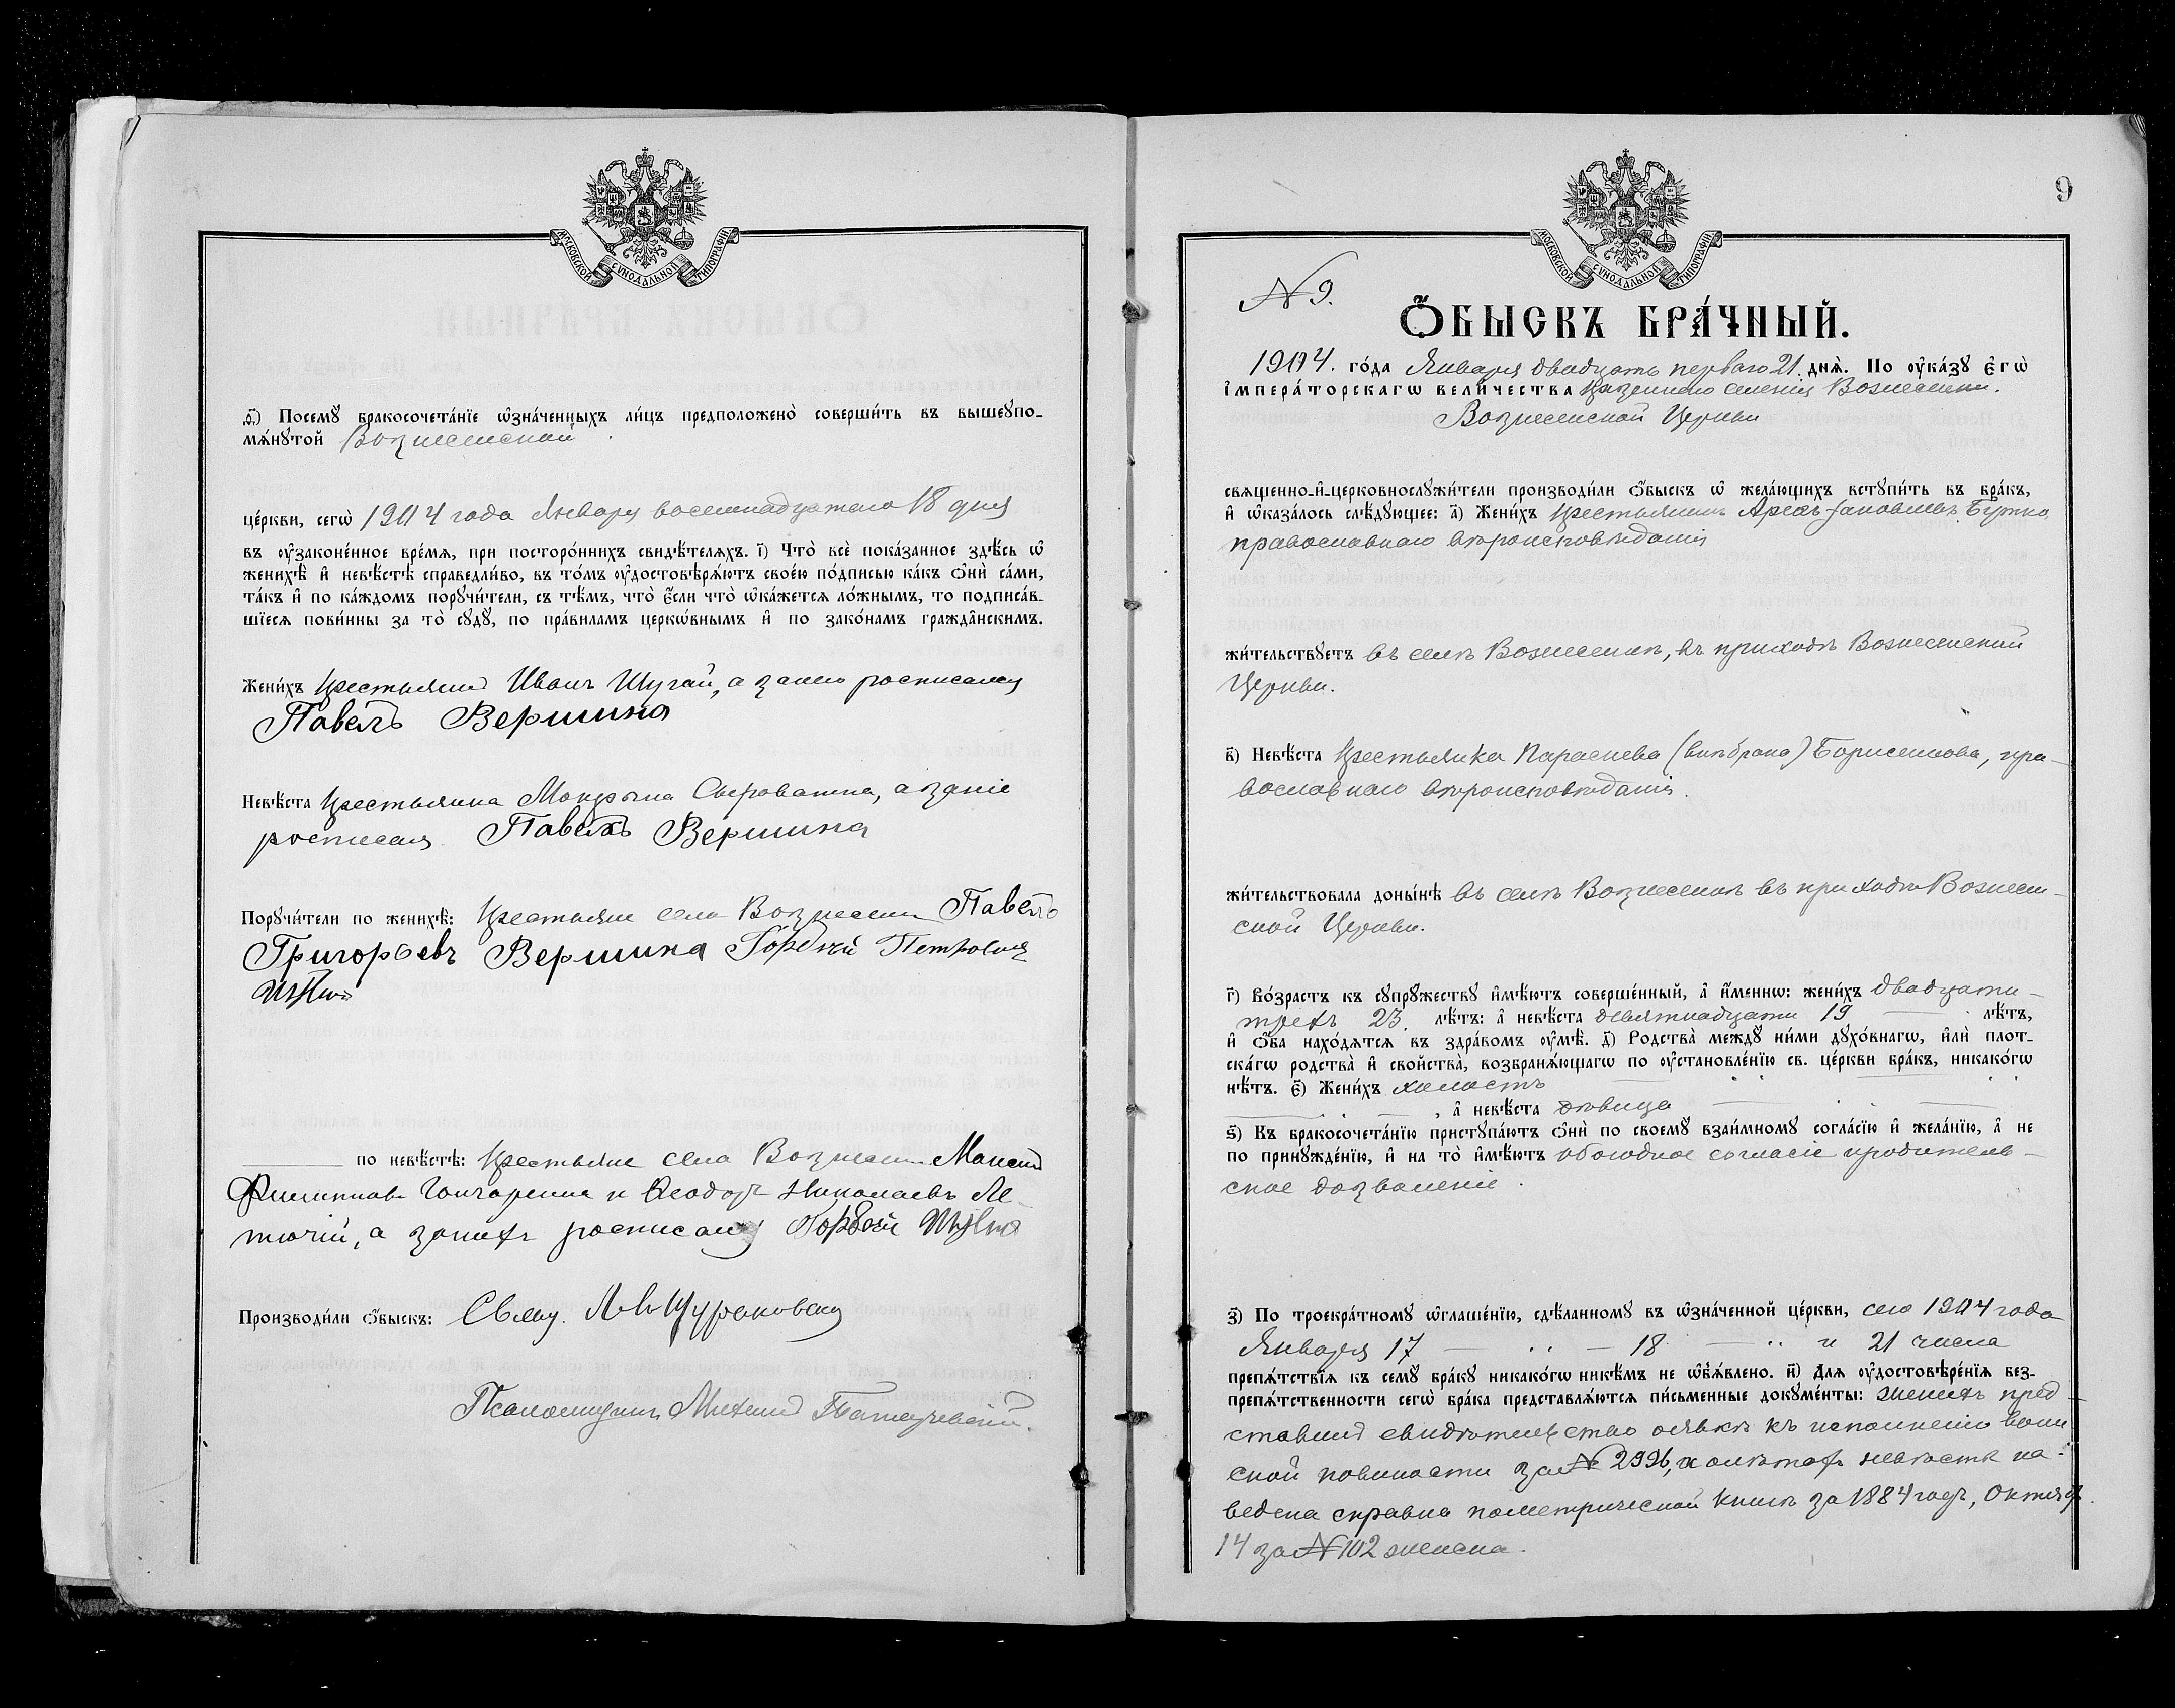 МОСКОВСКОЙ СУНОДАЛЬНОЙ ТИПОГРАФІИ
ѳ҃) Посемꙋ̀ бракосочета́нїе ѡ҆зна́ченныхъ ли́цъ предположено̀ соверши́ть въ вышеꙋпо-
мѧ́нꙋтой Вознесенской
це́ркви, сегѡ̀ 1904 года Января восемнадцатаго 18 дня
въ ᲂу҆законе́нное вре́мѧ, при посторо́ннихъ свидѣ́телѧхъ. і҃) Что̀ всѐ пока́занное здѣ́сь ѡ҆
женихѣ̀ и҆ невѣ́стѣ справедли́во, въ то́мъ ᲂу҆достовѣрѧ́ютъ свое́ю по́дписью ка́къ ѻ҆нѝ са́ми,
та́къ и҆ по ка́ждомъ порꙋчи́тели, съ тѣ́мъ, что̀ є҆́сли что̀ ѡ҆ка́жетсѧ ло́жнымъ, то подписа́в-
шїесѧ пови́нны за то̀ сꙋдꙋ̀, по пра́виламъ церкѡ́внымъ и҆ по зако́намъ гражда̂нскимъ.
Жени́хъ крестьянинъ Иванъ Шугай, а за него росписался
Павелъ Вершина
Невѣ́ста крестьянка Мокрына Сыроватка, а за нее
росписался Павелъ Вершина
Порꙋчи́тели по женихѣ̀: крестьяне села Вознесенки Павелъ
Григорьевъ Вершина Гордѣй Петровичъ
по невѣ́стѣ: крестьяне села Вознесенки Максимъ
Филипповъ Гончаренко и Ѳеодоръ Николаевъ Ле
тючій, а за нихъ росписался Гордѣй
Производи́ли ѻ҆́быскъ: Свящ.
Псаломщикъ Михаилъ
9
МОСКОВСКОЙ СУНОДАЛЬНОЙ ТИПОГРАФІИ
N 9.
Ѻ҆́БЫСКЪ БРА́ЧНЫЙ.
1904. го́да Января двадцать перваго 21. днѧ̀. По ᲂу҆ка́зꙋ є҆гѡ̀
і҆мпера́торскагѡ вели́чества казеннаго селенія Вознесенки.
Вознесенской Церкви
свѧщенно-и҆-церковнослꙋжи́тели производи́ли ѻ҆́быскъ ѡ҆ жела́ющихъ встꙋпи́ть въ бра́къ,
и҆ ѡ҆каза́лось слѣ́дꙋющее: а҃) Жени́хъ крестьянинъ Яковлевъ Бутко
православнаго вѣроисповѣданія
жи́тельствꙋетъ въ селѣ Вознесенкѣ, въ приходѣ Вознесенской
Церкви.
в҃) Невѣ́ста крестьянка Параскева (внѣбрачна) Борисенкова, пра-
вославнаго вѣроисповѣданія.
жи́тельствовала доны́нѣ въ селѣ Вознесенкѣ въ приходѣ Вознесен-
ской Церкви.
г҃) Во́зрастъ къ сꙋпрꙋ́жествꙋ и҆мѣ́ютъ соверше́нный, а҆ и҆́меннѡ: жени́хъ двадцати-
трехъ 23. лѣ́тъ: а҆ невѣ́ста девятнадцати 19 лѣ́тъ,
и҆ ѻ҆́ба нахо́дѧтсѧ въ здра́вомъ ᲂу҆мѣ̀. д҃) Родства̀ междꙋ̀ ни́ми дꙋхо́внагѡ, и҆лѝ плот-
ска́гѡ родства̀ и҆ свойства̀, возбранѧ́ющагѡ по ᲂу҆становле́нїю св. це́ркви бра́къ, никако́гѡ
нѣ́тъ. є҃) Жени́хъ холостъ
, а҆ невѣ́ста дѣвица
ѕ҃) Къ бракосочета́нїю пристꙋпа́ютъ ѻ҆нѝ по своемꙋ̀ взаи́мномꙋ согла́сїю и҆ жела́нїю, а҆ не
по принꙋжде́нїю, и҆ на то̀ и҆мѣ́ютъ обоюдное согласіе и родитель-
ское дозволеніе.
з҃) По троекра́тномꙋ ѡ҆глаше́нїю, сдѣ́ланномꙋ въ ѡ҆зна́ченной це́ркви, сего 1904 года
Января 17 — 18 — и 21 числа
препѧ́тствїѧ къ семꙋ̀ бра́кꙋ никако́гѡ никѣ́мъ не ѡ҆б̾ѧ́влено. и҃) Длѧ ᲂу҆достовѣре́нїѧ без-
препѧ́тственности сегѡ̀ бра́ка представлѧ́ютсѧ пи́сьменные докꙋме́нты: женихъ пред-
ставилъ свидѣтельство о явкѣ къ исполненію воин
ской повиности за N 2996, а о лѣтахъ невѣсты на-
ведена справка по метрической книгѣ за 1884 годъ, Октября
14 за N 102 женска.